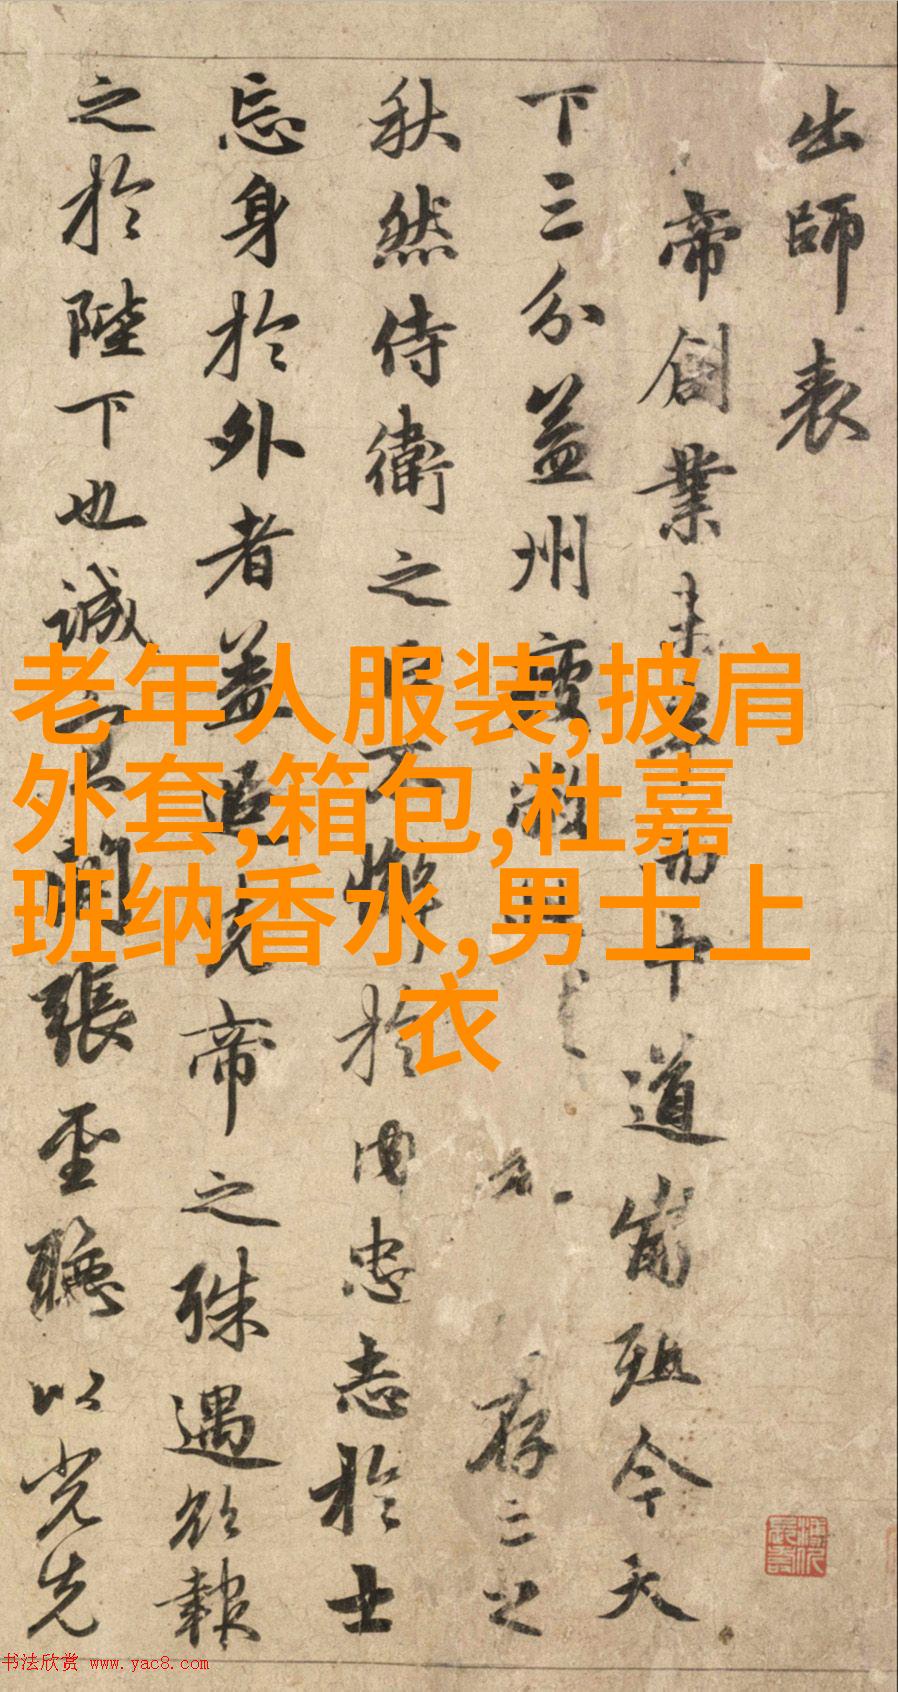 出師表
帝創業未而中道崩殂今天
下三分益州疲敝存亡之
秋然侍衛之臣不懈於内忠志於士
忘身於外者蓋追先帝之殊遇欲報
之於陛下也誠宜開張聖聽以光先
老年人服装,披肩
外套,箱包,杜嘉
班纳香水,男士上
衣
书法欣赏 www.yac8.com